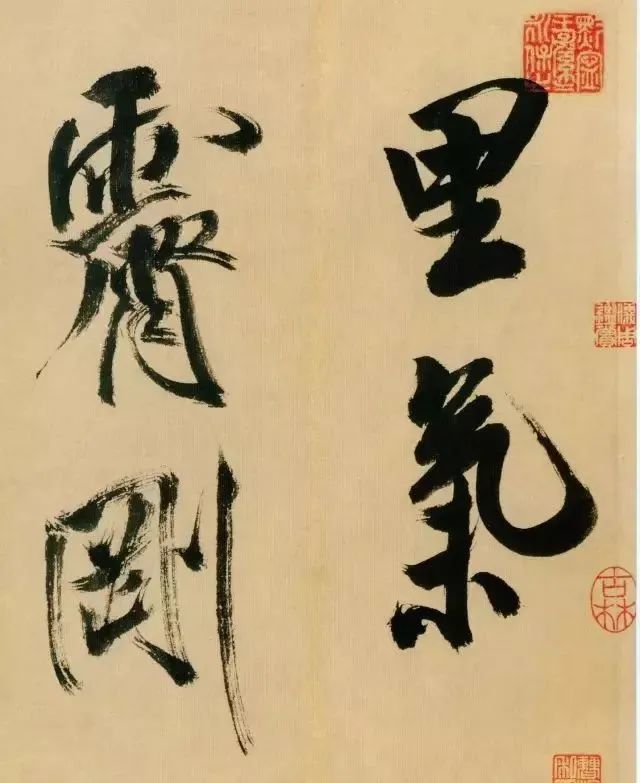 里氣
霽剛
古林